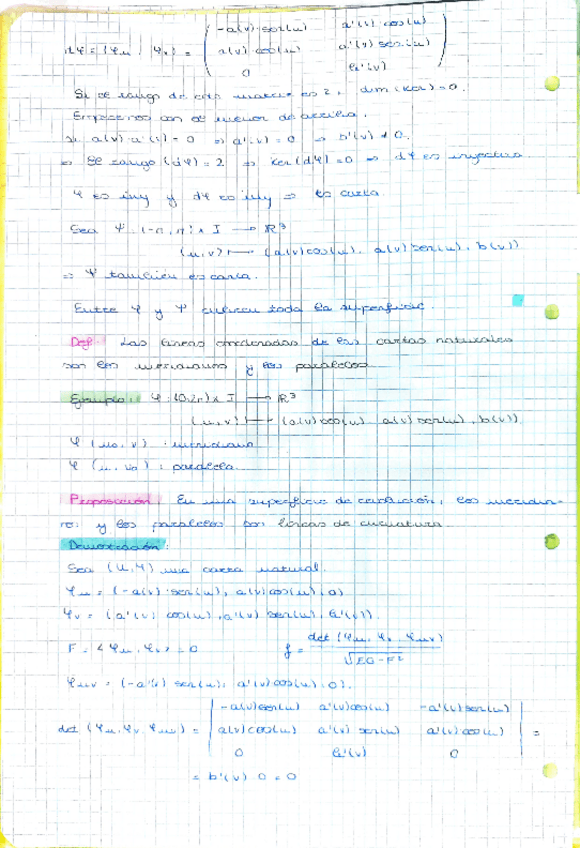 dφ = (φu φv) = ( -a(v)·sen(u) a'(v)·cos(u)
a(v) cos(u) a'(v) sen(u)
0 b'(v) )
Si el rango de esta matriz es 2, dim(Ker) = 0.
Empecemos con el menor de arriba.
Si a(v)·a'(v) = 0 ⇒ a'(v) = 0 ⇒ b'(v) ≠ 0.
⇒ El rango (dφ) = 2 ⇒ Ker(dφ) = 0 ⇒ dφ es inyectiva
φ es iny y dφ es iny ⇒ es carta.
Sea Ψ: (-π, π) x I → R³
(u,v) ↦ (a(v)cos(u), a(v)sen(u), b(v))
⇒ Ψ también es carta.
Entre φ y Ψ cubren toda la superficie.
Def: Las líneas coordenadas de las cartas naturales
son los meridianos y los paralelos.
Ejemplo: φ: (0,2π) x I → R³
(u,v) ↦ (a(v)cos(u), a(v)sen(u), b(v))
φ(u₀, v): meridiano
φ(u, v₀): paralelo.
Proposición: En una superficie de revolución, los meridia-
nos y los paralelos son líneas de curvatura.
Demostración:
Sea (U, φ) una carta natural.
φu = (-a(v)·sen(u), a(v)cos(u), 0)
φv = (a'(v) cos(u), a'(v) sen(u), b'(v)).
F = <φu, φv> = 0 f = det(φu, φv, φuv) / √EG-F²
φuv = (-a'(v) sen(u), a'(v)cos(u), 0).
det (φu, φv, φuv) = | -a(v)sen(u) a'(v)cos(u) -a'(v)sen(u)
a(v)cos(u) a'(v) sen(u) a'(v)cos(u)
0 b'(v) 0 | =
= b'(v)·0 = 0